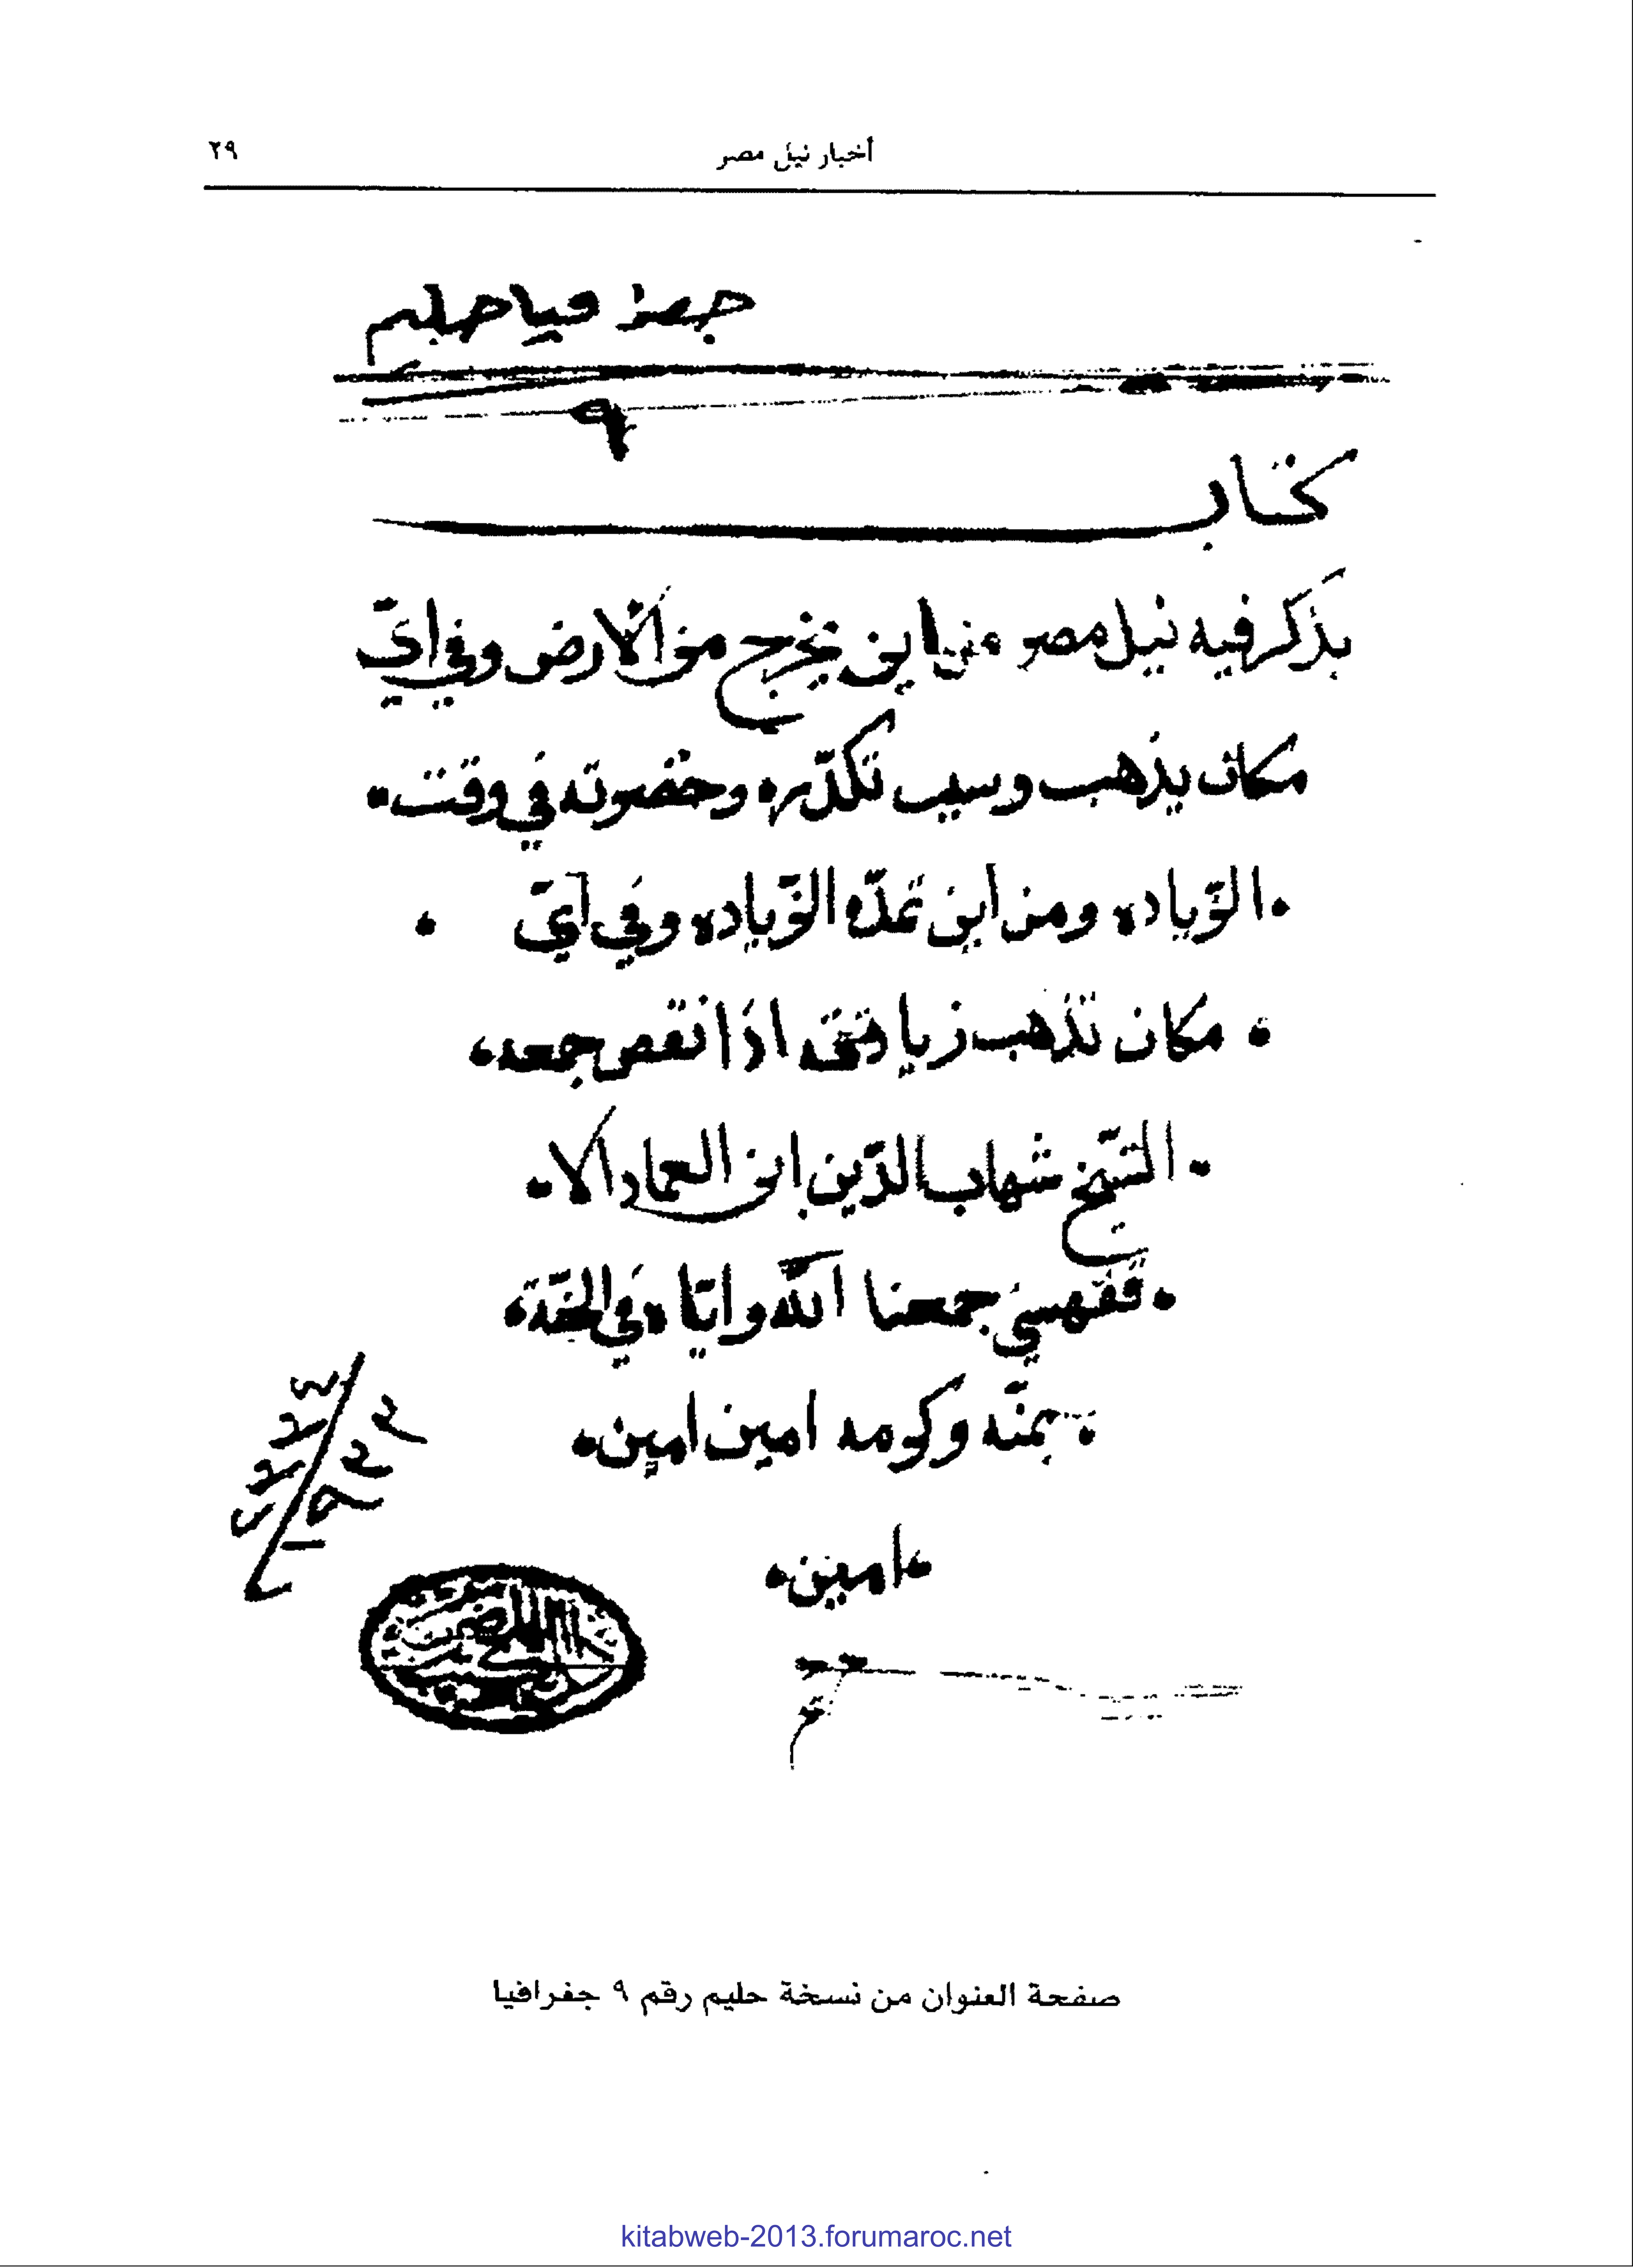 أخبار نيل مصر ٢٩
جغرافيا حليم
٩
كتاب
يذكر فيه نيل مصر من اين يخرج من الارض وفي اي
مكان يذهب وسبب تكدّره وخضرته في وقت
الزّياده ومن اين تمدّه الزّياده وفي ايّ
مكان تذهب زيادته اذا نقص جمعه
الشّيخ شهاب الدّين ابن العماد الا
قفهسي جمعنا الله وايّاه في الجنّة
بمنّه وكرمه امين امين
امين
صفحة العنوان من نسخة حليم رقم ٩ جغرافيا
kitabweb-2013.forumaroc.net